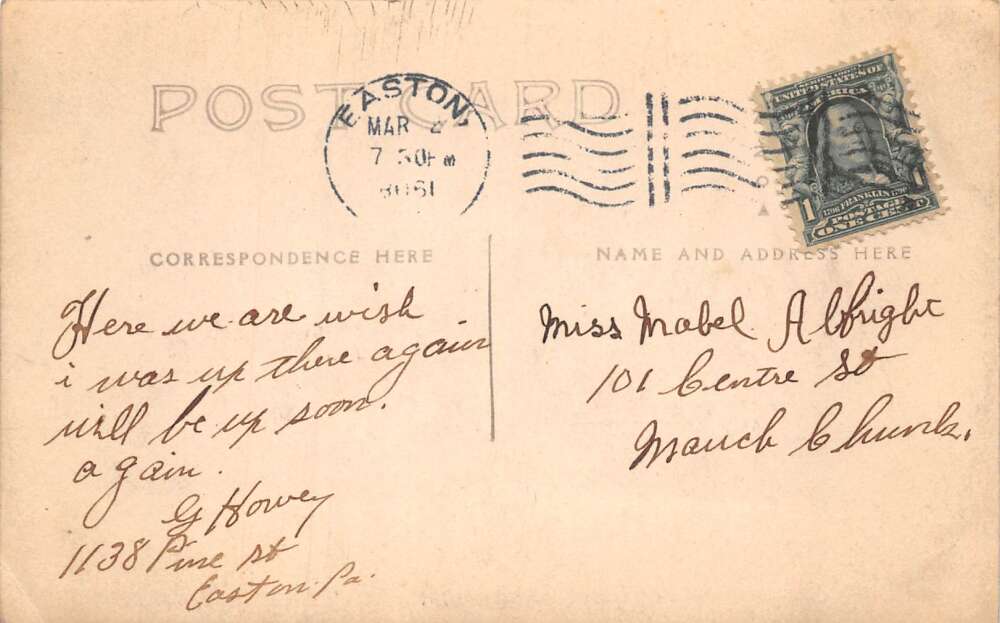 POST CARD
EASTON,
MAR
7 30 PM
SERIES 1902
UNITED STATES OF
AMERICA
1 1706 FRANKLIN 1790 1
POSTAGE
ONE CENT
CORRESPONDENCE HERE
Here we are wish
i was up there again
will be up soon.
again.
G Howey
1138 Pine st
Easton Pa.
NAME AND ADDRESS HERE
Miss Mabel Albright
101 Centre St
Mauch Chunk.